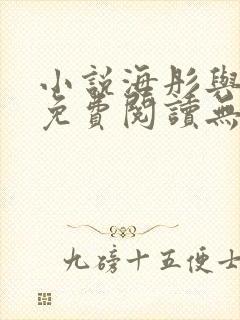 小說海彤與
免費閱讀無
九磅十五便士